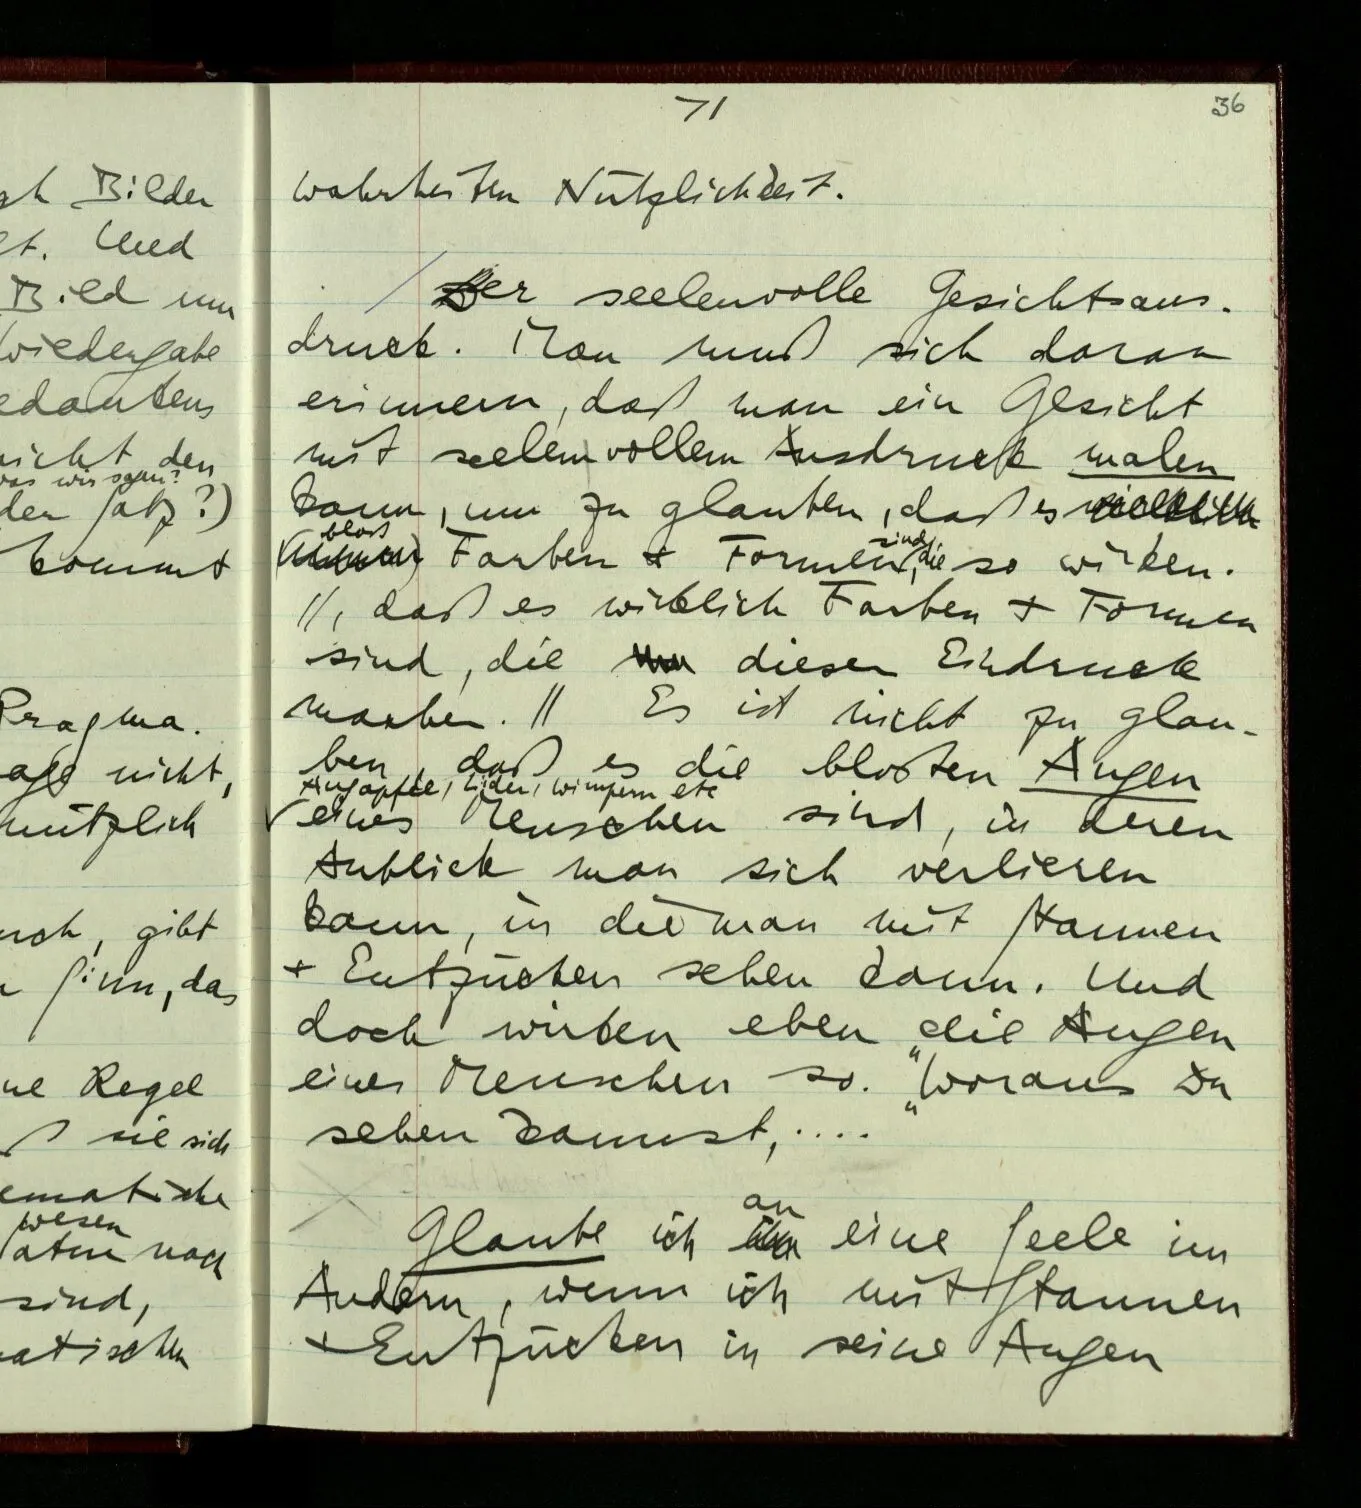 Bilder
Und
Bild nun
wiedergabe
nicht den
was wir sagen?
der Satz?)
kommt
Pragma-
nicht,
nützlich
gibt
Sinn, das
Regel
sie sich
wesen
nach
sind,
71
36
wahrheiten Nützlichkeit.
/ Der seelenvolle Gesichtsaus-
druck. Man muß sich daran
erinnern, daß man ein Gesicht
mit seelenvollem Ausdruck malen
kann, um zu glauben, daß es
bloß sind
Farben + Formen, die so wirken.
//, daß es wirklich Farben + Formen
sind, die diesen Eindruck
machen. // Es ist nicht zu glau-
ben, daß es die bloßen Augen
Augapfel, Lider, Wimpern etc
eines Menschen sind, in deren
Anblick man sich verlieren
kann, in die man mit Staunen
+ Entzücken sehen kann. Und
doch wirken eben die Augen
eines Menschen so. „Woraus Du
sehen kannst, ....
an
Glaube ich eine Seele im
Andern, wenn ich mit Staunen
+ Entzücken in seine Augen